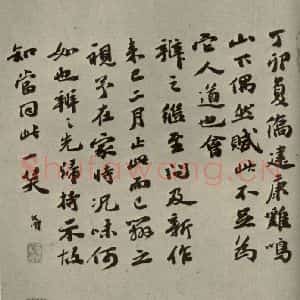 丁卯夏僑建康雞鳴
山下偶然賦此不足為
它人道也會
辦之繼至詢及新作
來已二月止此而已翱立
視予在家時况味何
如也辦之先歸持示故
知當同此一笑